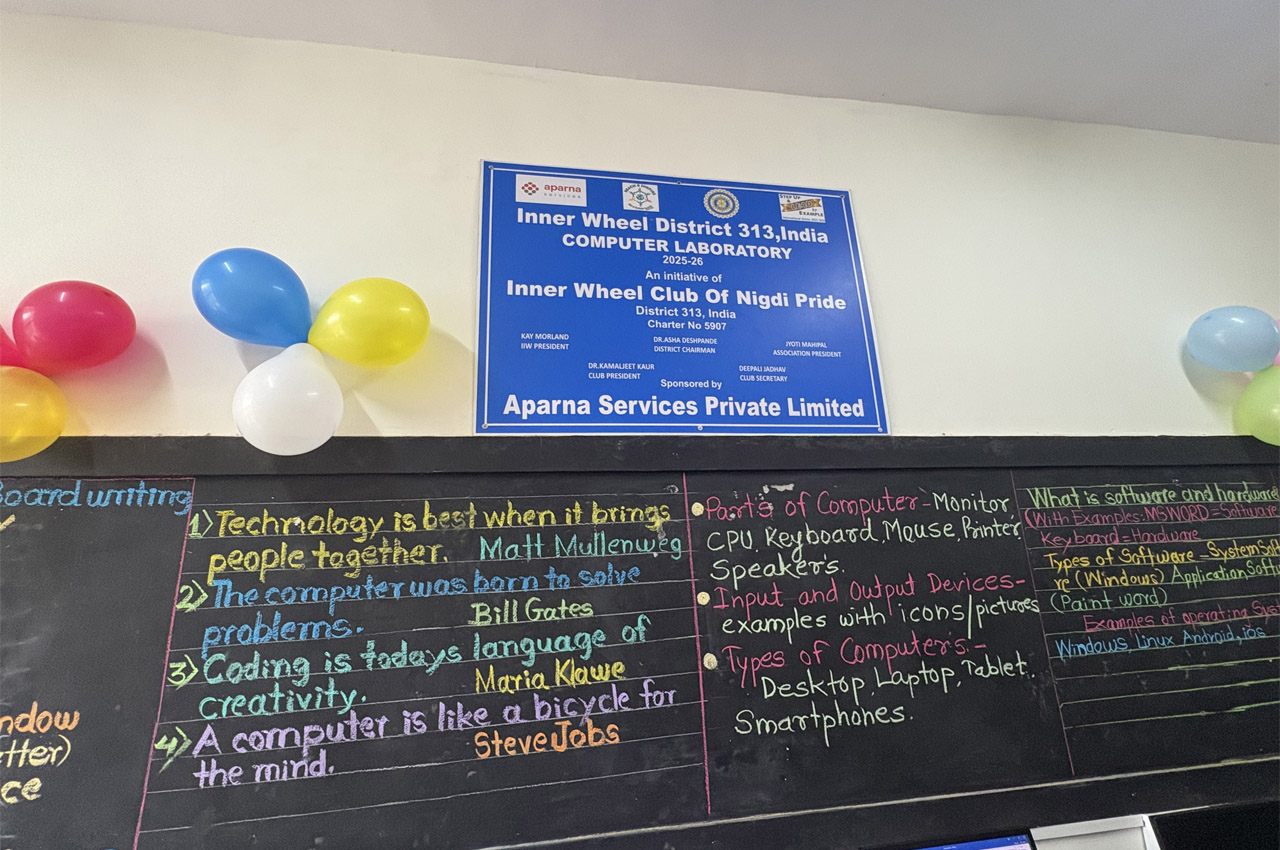 aparna
services
STEP UP
& LEAD
BY
EXAMPLE
Inner Wheel District 313,India
COMPUTER LABORATORY
2025-26
An initiative of
Inner Wheel Club Of Nigdi Pride
District 313, India
Charter No 5907
KAY MORLAND
IIW PRESIDENT
DR.ASHA DESHPANDE
DISTRICT CHAIRMAN
JYOTI MAHIPAL
ASSOCIATION PRESIDENT
DR.KAMALJEET KAUR
CLUB PRESIDENT
DEEPALI JADHAV
CLUB SECRETARY
Sponsored by
Aparna Services Private Limited
Board writing
ndow
tter)
ce
1) Technology is best when it brings
people together. Matt Mullenweg
2) The computer was born to solve
problems. Bill Gates
3) Coding is todays language of
creativity. Maria Klawe
4) A computer is like a bicycle for
the mind. Steve Jobs
Part's of Computer - Monitor,
CPU, Keyboard, Mouse, Printer,
Speaker's.
Input and Output Devices-
examples with icons/pictures
Types of Computer's.-
Desktop, Laptop, Tablet,
Smartphones.
What is software and hardware
(With Examples: MS WORD = Software
Keyboard = Hardware
Types of Software - System Soft
re (Windows) Application Softw
(Paint word)
Examples of operating Sys
Windows, Linux Android, ios